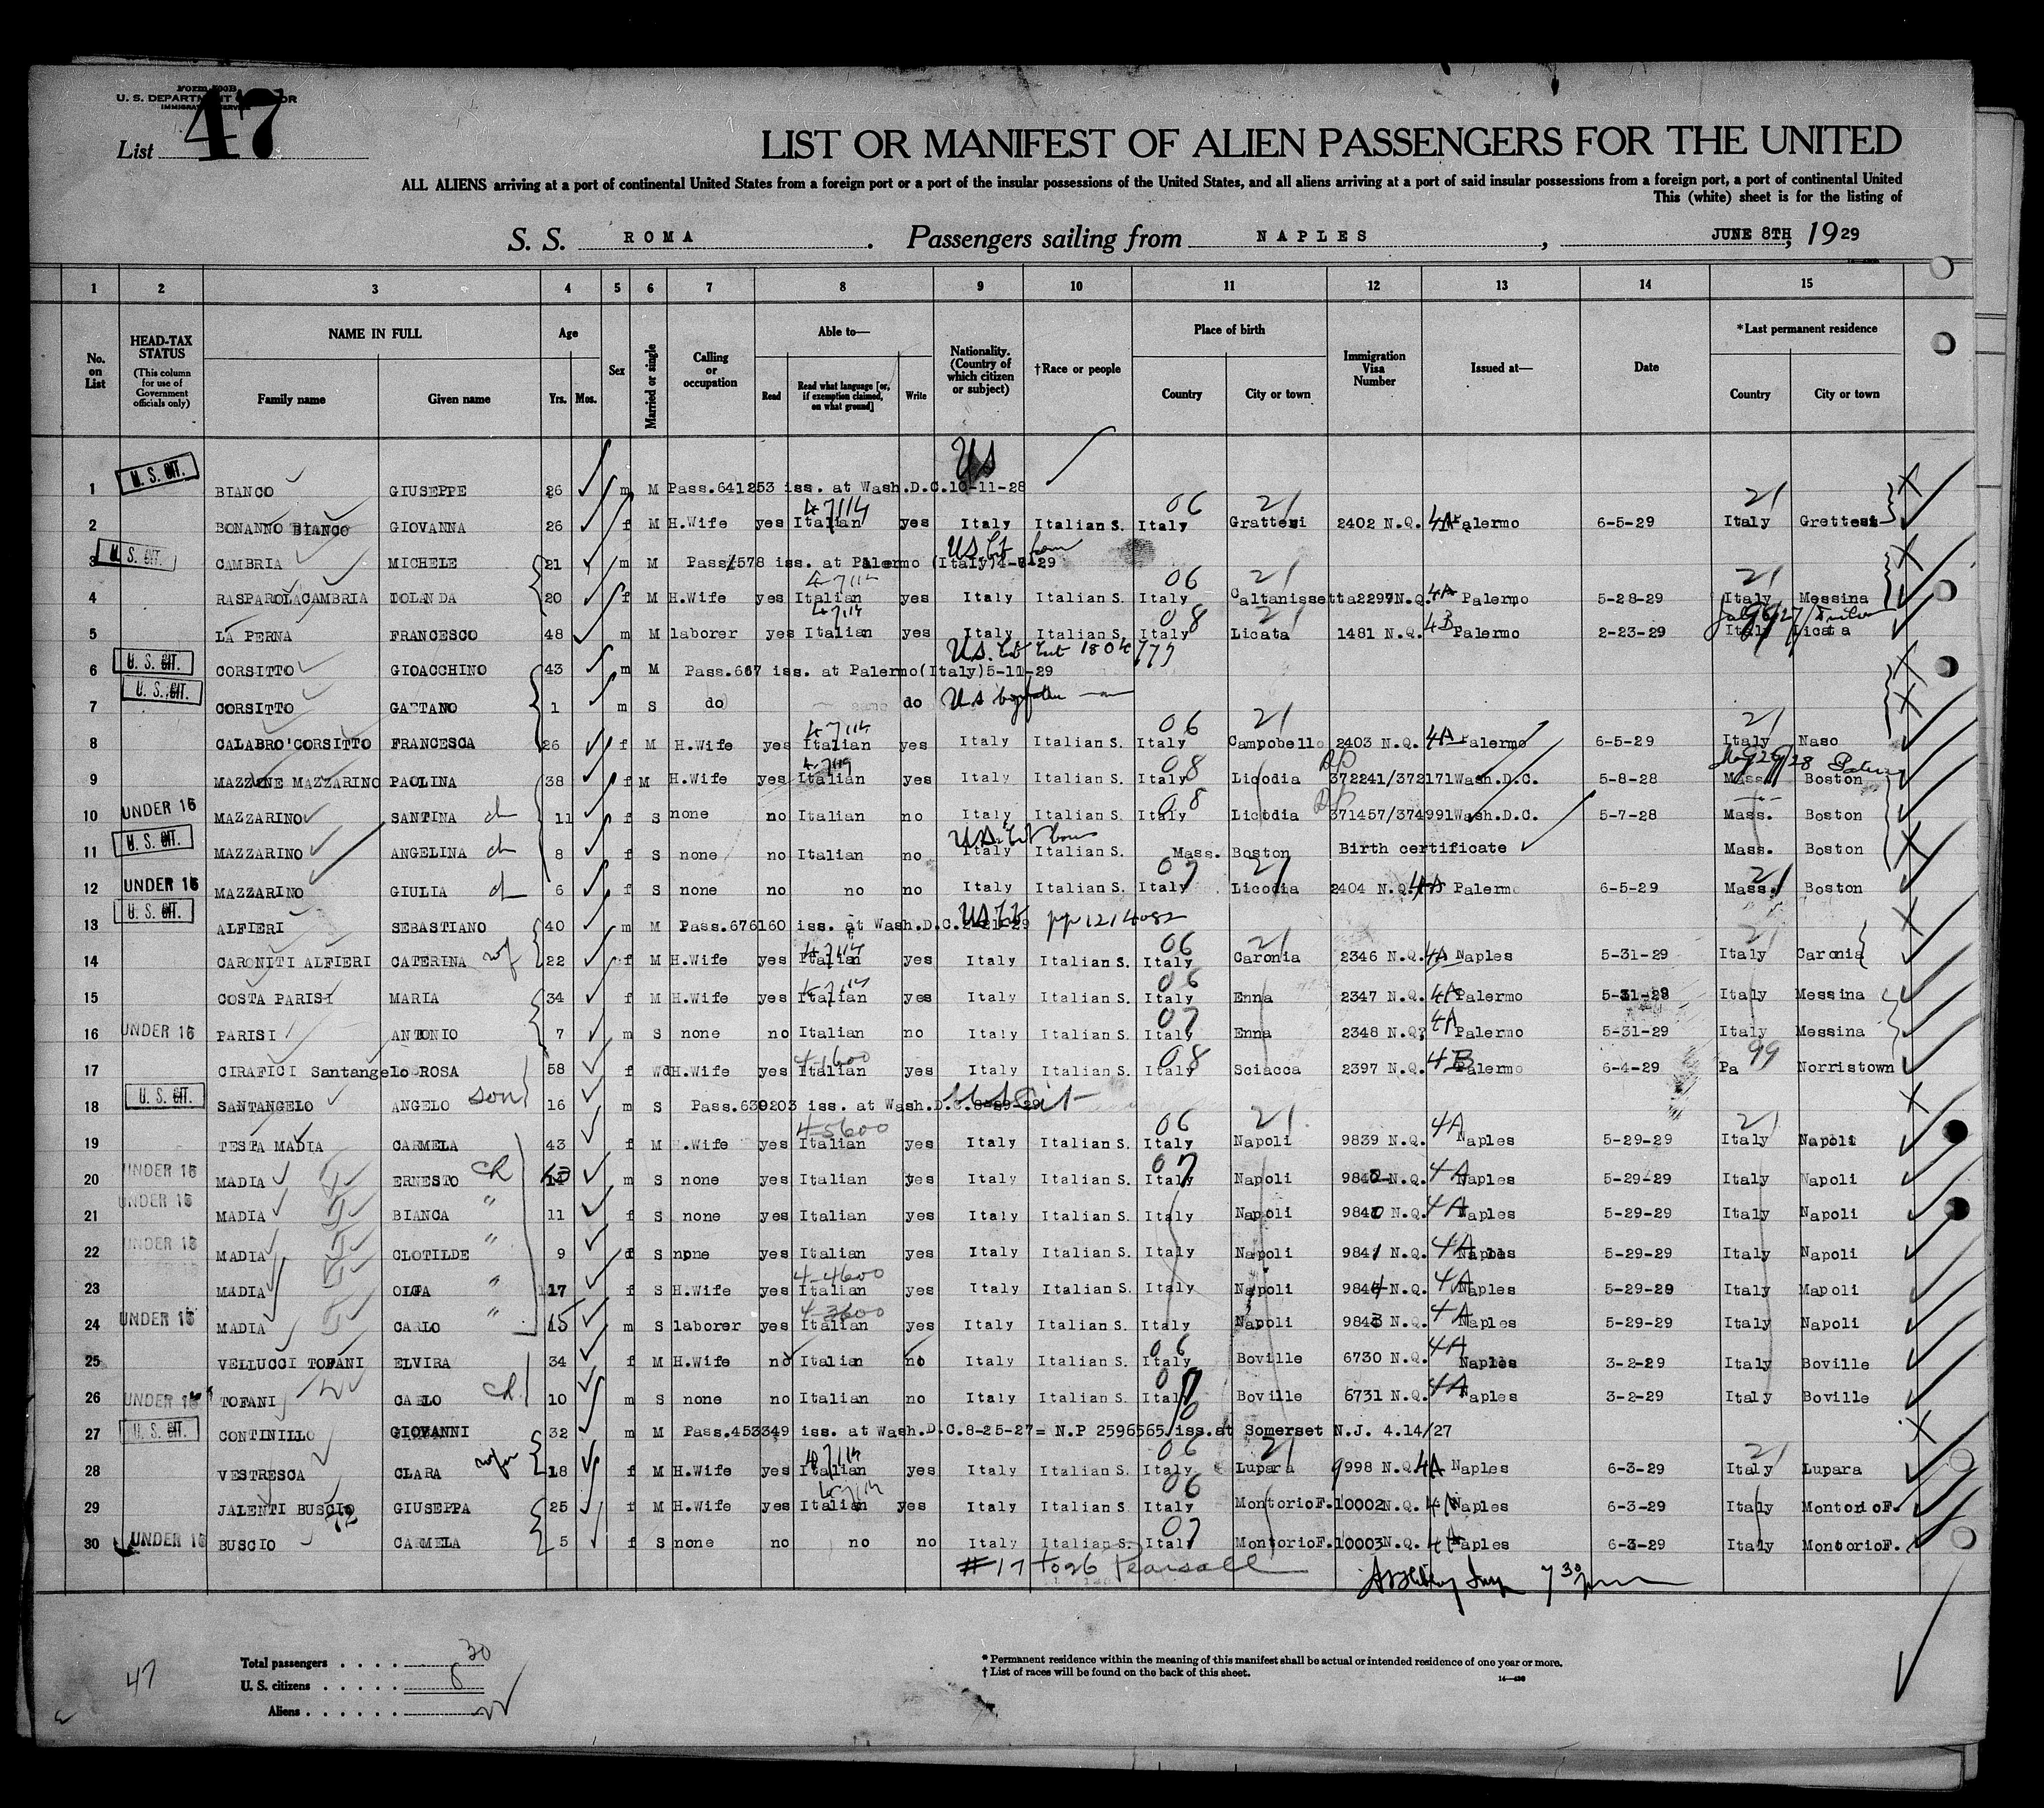 Form 500B
U. S. DEPARTMENT OF LABOR
IMMIGRATION SERVICE
List 47
LIST OR MANIFEST OF ALIEN PASSENGERS FOR THE UNITED
ALL ALIENS arriving at a port of continental United States from a foreign port or a port of the insular possessions of the United States, and all aliens arriving at a port of said insular possessions from a foreign port, a port of continental United
This (white) sheet is for the listing of
S. S. ROMA . Passengers sailing from NAPLES , JUNE 8TH, 1929
1 2 3 4 5 6 7 8 9 10 11 12 13 14 15
No. on List HEAD-TAX STATUS (This column for use of Government officials only) NAME IN FULL Family name Given name Age Yrs. Mos. Sex Married or single Calling or occupation Able to— Read Read what language [or, if exemption claimed, on what ground] Write Nationality. (Country of which citizen or subject) †Race or people Place of birth Country City or town Immigration Visa Number Issued at— Date *Last permanent residence Country City or town
1 U. S. CIT. BIANCO GIUSEPPE 26 m M Pass.641253 iss. at Wash.D.C.10-11-28 US
2 BONANNO BIANCO GIOVANNA 26 f M H.Wife yes Italian yes Italy Italian S. Italy 06 21 2402 N.Q. 4A Palermo 6-5-29 Italy 21
3 U. S. CIT. CAMBRIA MICHELE 21 m M iss. at Palermo (Italy) US Cit born
4 RASPAROLACAMBRIA IOLANDA 20 f M H.Wife yes Italian yes Italy Italian S. Italy 06 21 Caltanissetta 2299 N.Q. 4A Palermo 5-28-29 Italy 21 Messina
5 LA PERNA FRANCESCO 48 m M laborer yes Italian yes Italy Italian S. Italy 08 Licata 1481 N.Q. 4B Palermo 2-23-29 Italy Licata
6 U. S. CIT. CORSITTO GIOACCHINO 43 m M Pass.667 iss. at Palermo(Italy)5-11-29
7 U. S. CIT. CORSITTO GAETANO 1 m S do do US by father
8 CALABRO'CORSITTO FRANCESCA 26 f M H.Wife yes Italian yes Italy Italian S. Italy 06 21 Campobello 2403 N.Q. 4A Palermo 6-5-29 Italy 21 Naso
9 MAZZONE MAZZARINO PAOLINA 38 f M H.Wife yes Italian yes Italy Italian S. Italy 08 Licodia 372241/372171 Wash.D.C. 5-8-28 Mass. Boston
10 UNDER 16 MAZZARINO SANTINA ch 11 f S none no Italian no Italy Italian S. Italy 08 Licodia 371457/374991 Wash.D.C. 5-7-28 Mass. Boston
11 U. S. CIT. MAZZARINO ANGELINA ch 8 f S none no Italian no Italy Italian S. US Cit born Mass. Boston Birth certificate Mass. Boston
12 UNDER 16 MAZZARINO GIULIA ch 6 f S none no no no Italy Italian S. Italy 07 21 Licodia 2404 N.Q. 4A Palermo 6-5-29 Mass. 21 Boston
13 U. S. CIT. ALFIERI SEBASTIANO 40 m M Pass.676160 iss. at Wash.D.C. US Cit
14 CARONITI ALFIERI CATERINA wf 22 f M H.Wife yes Italian yes Italy Italian S. Italy 06 21 Caronia 2346 N.Q. 4A Naples 5-31-29 Italy 21 Caronia
15 COSTA PARISI MARIA 34 f M H.Wife yes Italian yes Italy Italian S. Italy 06 Enna 2347 N.Q. 4A Palermo Italy Messina
16 UNDER 16 PARISI ANTONIO 7 m S none no Italian no Italy Italian S. Italy 07 Enna 2348 N.Q. 4A Palermo 5-31-29 Italy Messina
17 CIRAFICI Santangelo ROSA 58 f Wd H.Wife yes 4-1600 Italian yes Italy Italian S. Italy 08 Sciacca 2397 N.Q. 4B Palermo 6-4-29 Pa 99 Norristown
18 U. S. CIT. SANTANGELO ANGELO son 16 m S Pass.630203 iss. at Wash.D.C. US Cit
19 TESTA MADIA CARMELA 43 f M H.Wife yes 4-5600 Italian yes Italy Italian S. Italy 06 21 Napoli 9839 N.Q. 4A Naples 5-29-29 Italy 21 Napoli
20 UNDER 16 MADIA ERNESTO ch m S none yes Italian yes Italy Italian S. Italy 07 Napoli 9842 N.Q. 4A Naples 5-29-29 Italy Napoli
21 UNDER 16 MADIA BIANCA " 11 f S none yes Italian yes Italy Italian S. Italy Napoli 9840 N.Q. 4A Naples 5-29-29 Italy Napoli
22 UNDER 16 MADIA CLOTILDE " 9 f S none yes Italian yes Italy Italian S. Italy Napoli 9841 N.Q. 4A Naples 5-29-29 Italy Napoli
23 MADIA OLGA " 17 f S H.Wife yes 4-4600 Italian yes Italy Italian S. Italy Napoli 9844 N.Q. 4A Naples 5-29-29 Italy Mapoli
24 UNDER 16 MADIA CARLO " 15 m S laborer yes 4-3600 Italian yes Italy Italian S. Italy Napoli 9843 N.Q. 4A Naples 5-29-29 Italy Napoli
25 VELLUCCI TOFANI ELVIRA 34 f M H.Wife no Italian no Italy Italian S. Italy 06 Boville 6730 N.Q. 4A Naples 3-2-29 Italy Boville
26 UNDER 16 TOFANI CARLO ch 10 m S none no Italian no Italy Italian S. Italy 07 Boville 6731 N.Q. 4A Naples 3-2-29 Italy Boville
27 U. S. CIT. CONTINILLO GIOVANNI 32 m M Pass.453349 iss. at Wash.D.C.8-25-27= N.P 2596565 iss.at Somerset N.J. 4.14/27
28 VESTRESCA CLARA 18 f M H.Wife yes Italian yes Italy Italian S. Italy 06 21 Lupara 9998 N.Q. 4A Naples 6-3-29 Italy 21 Lupara
29 JALENTI BUSCIO GIUSEPPA 25 f M H.Wife yes Italian yes Italy Italian S. Italy 06 MontorioF. 10002N.Q. 4A Naples 6-3-29 Italy MontorioF.
30 UNDER 16 BUSCIO CARMELA 5 f S none no no no Italy Italian S. Italy 07 MontorioF. 10003N.Q. 4A Naples 6-3-29 Italy MontorioF.
#17 to 26 Pearsall
7 30 pm
Total passengers . . . . 30
U. S. citizens . . . . . 8
Aliens . . . . . . 22
47
* Permanent residence within the meaning of this manifest shall be actual or intended residence of one year or more.
† List of races will be found on the back of this sheet.